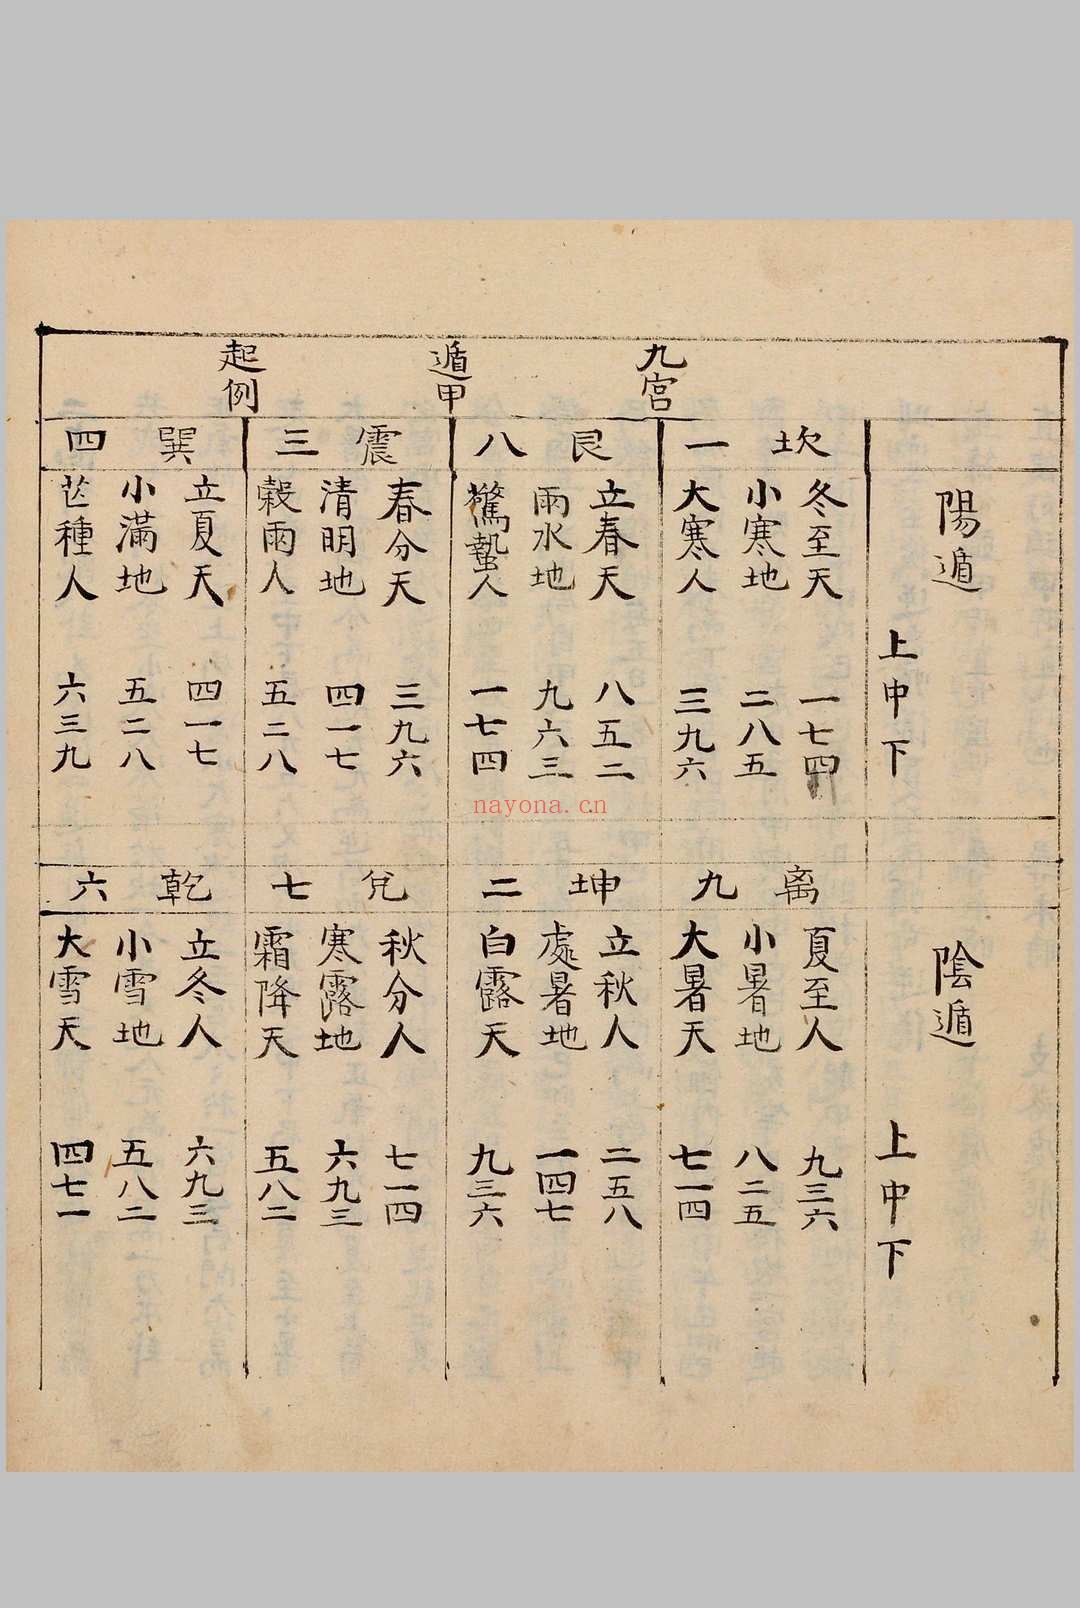 九宮 遁甲 起例
坎一 艮八 震三 巽四
陽遁 上中下
冬至天 一七四
小寒地 二八五
大寒人 三九六
立春天 八五二
雨水地 九六三
驚蟄人 一七四
春分天 三九六
清明地 四一七
穀雨人 五二八
立夏天 四一七
小滿地 五二八
芒種人 六三九
nayona.cn
离九 坤二 兌七 乾六
陰遁 上中下
夏至人 九三六
小暑地 八二五
大暑天 七一四
立秋人 二五八
處暑地 一四七
白露天 九三六
秋分人 七一四
寒露地 六九三
霜降天 五八二
立冬人 六九三
小雪地 五八二
大雪天 四七一